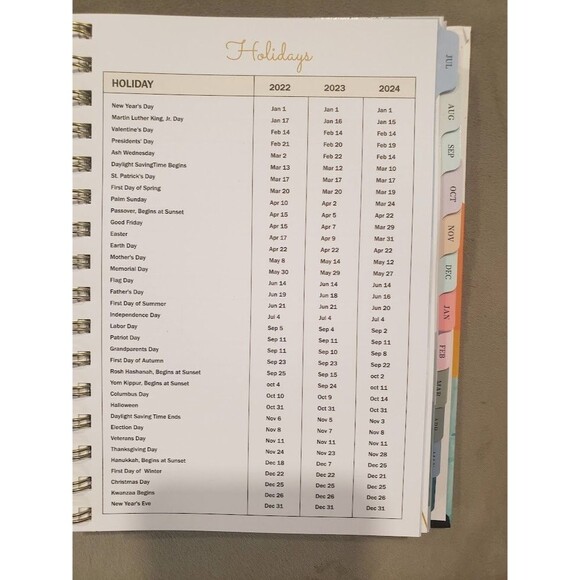 Holidays
HOLIDAY 2022 2023 2024
New Year's Day Jan 1 Jan 1 Jan 1
Martin Luther King, Jr. Day Jan 17 Jan 16 Jan 15
Valentine's Day Feb 14 Feb 14 Feb 14
Presidents' Day Feb 21 Feb 20 Feb 19
Ash Wednesday Mar 2 Feb 22 Feb 14
Daylight SavingTime Begins Mar 13 Mar 12 Mar 10
St. Patrick's Day Mar 17 Mar 17 Mar 17
First Day of Spring Mar 20 Mar 20 Mar 19
Palm Sunday Apr 10 Apr 2 Mar 24
Passover, Begins at Sunset Apr 15 Apr 5 Apr 22
Good Friday Apr 15 Apr 7 Mar 29
Easter Apr 17 Apr 9 Mar 31
Earth Day Apr 22 Apr 22 Apr 22
Mother's Day May 8 May 14 May 12
Memorial Day May 30 May 29 May 27
Flag Day Jun 14 Jun 14 Jun 14
Father's Day Jun 19 Jun 18 Jun 16
First Day of Summer Jun 21 Jun 21 Jun 20
Independence Day Jul 4 Jul 4 Jul 4
Labor Day Sep 5 Sep 4 Sep 2
Patriot Day Sep 11 Sep 11 Sep 11
Grandparents Day Sep 11 Sep 10 Sep 8
First Day of Autumn Sep 23 Sep 23 Sep 22
Rosh Hashanah, Begins at Sunset Sep 25 Sep 15 oct 2
Yom Kippur, Begins at Sunset oct 4 Sep 24 oct 11
Columbus Day Oct 10 Oct 9 Oct 14
Halloween Oct 31 Oct 31 Oct 31
Daylight Saving Time Ends Nov 6 Nov 5 Nov 3
Election Day Nov 8 Nov 7 Nov 5
Veterans Day Nov 11 Nov 11 Nov 11
Thanksgiving Day Nov 24 Nov 23 Nov 28
Hanukkah, Begins at Sunset Dec 18 Dec 7 Dec 25
First Day of Winter Dec 22 Dec 22 Dec 21
Christmas Day Dec 25 Dec 25 Dec 25
Kwanzaa Begins Dec 26 Dec 26 Dec 26
New Year's Eve Dec 31 Dec 31 Dec 31
JUL
AUG
SEP
OCT
NOV
DEC
JAN
FEB
MAR